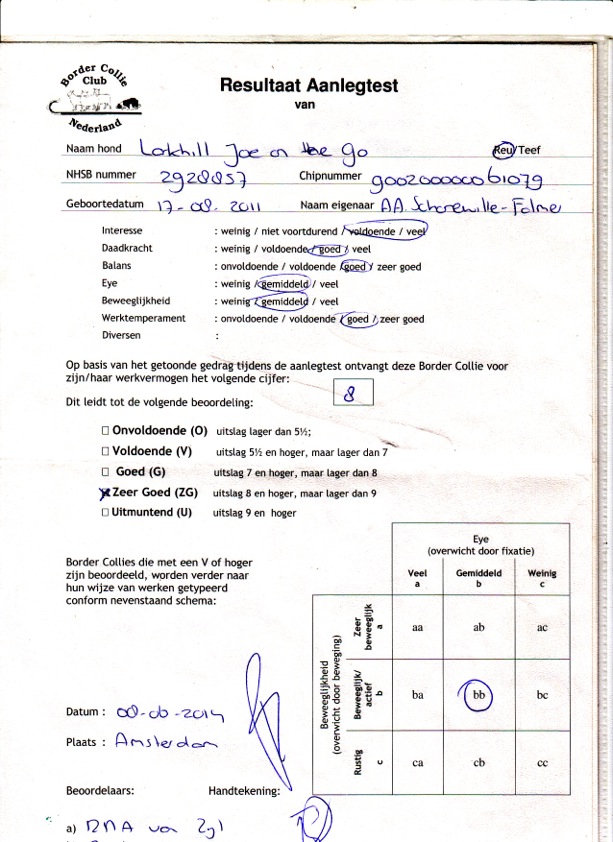 Border Collie
Club
Nederland
Resultaat Aanlegtest
van
Naam hond Lokhill Joe on the Go Reu/Teef
NHSB nummer 2928857 Chipnummer 900200000061079
Geboortedatum 17-08-2011 Naam eigenaar AA. Schonewille-Folmer
Interesse : weinig / niet voortdurend / voldoende / veel
Daadkracht : weinig / voldoende / goed / veel
Balans : onvoldoende / voldoende / goed / zeer goed
Eye : weinig / gemiddeld / veel
Beweeglijkheid : weinig / gemiddeld / veel
Werktemperament : onvoldoende / voldoende / goed / zeer goed
Diversen :
Op basis van het getoonde gedrag tijdens de aanlegtest ontvangt deze Border Collie voor
zijn/haar werkvermogen het volgende cijfer: 8
Dit leidt tot de volgende beoordeling:
Onvoldoende (O) uitslag lager dan 5½;
Voldoende (V) uitslag 5½ en hoger, maar lager dan 7
Goed (G) uitslag 7 en hoger, maar lager dan 8
Zeer Goed (ZG) uitslag 8 en hoger, maar lager dan 9
Uitmuntend (U) uitslag 9 en hoger
Border Collies die met een V of hoger
zijn beoordeeld, worden verder naar
hun wijze van werken getypeerd
conform nevenstaand schema:
Eye
(overwicht door fixatie)
Veel a Gemiddeld b Weinig c
Beweeglijkheid
(overwicht door beweging)
Zeer beweeglijk a aa ab ac
Beweeglijk/ actief b ba bb bc
Rustig c ca cb cc
Datum : 08-06-2014
Plaats : Amsterdam
Beoordelaars: Handtekening:
a) DNA van Zyl